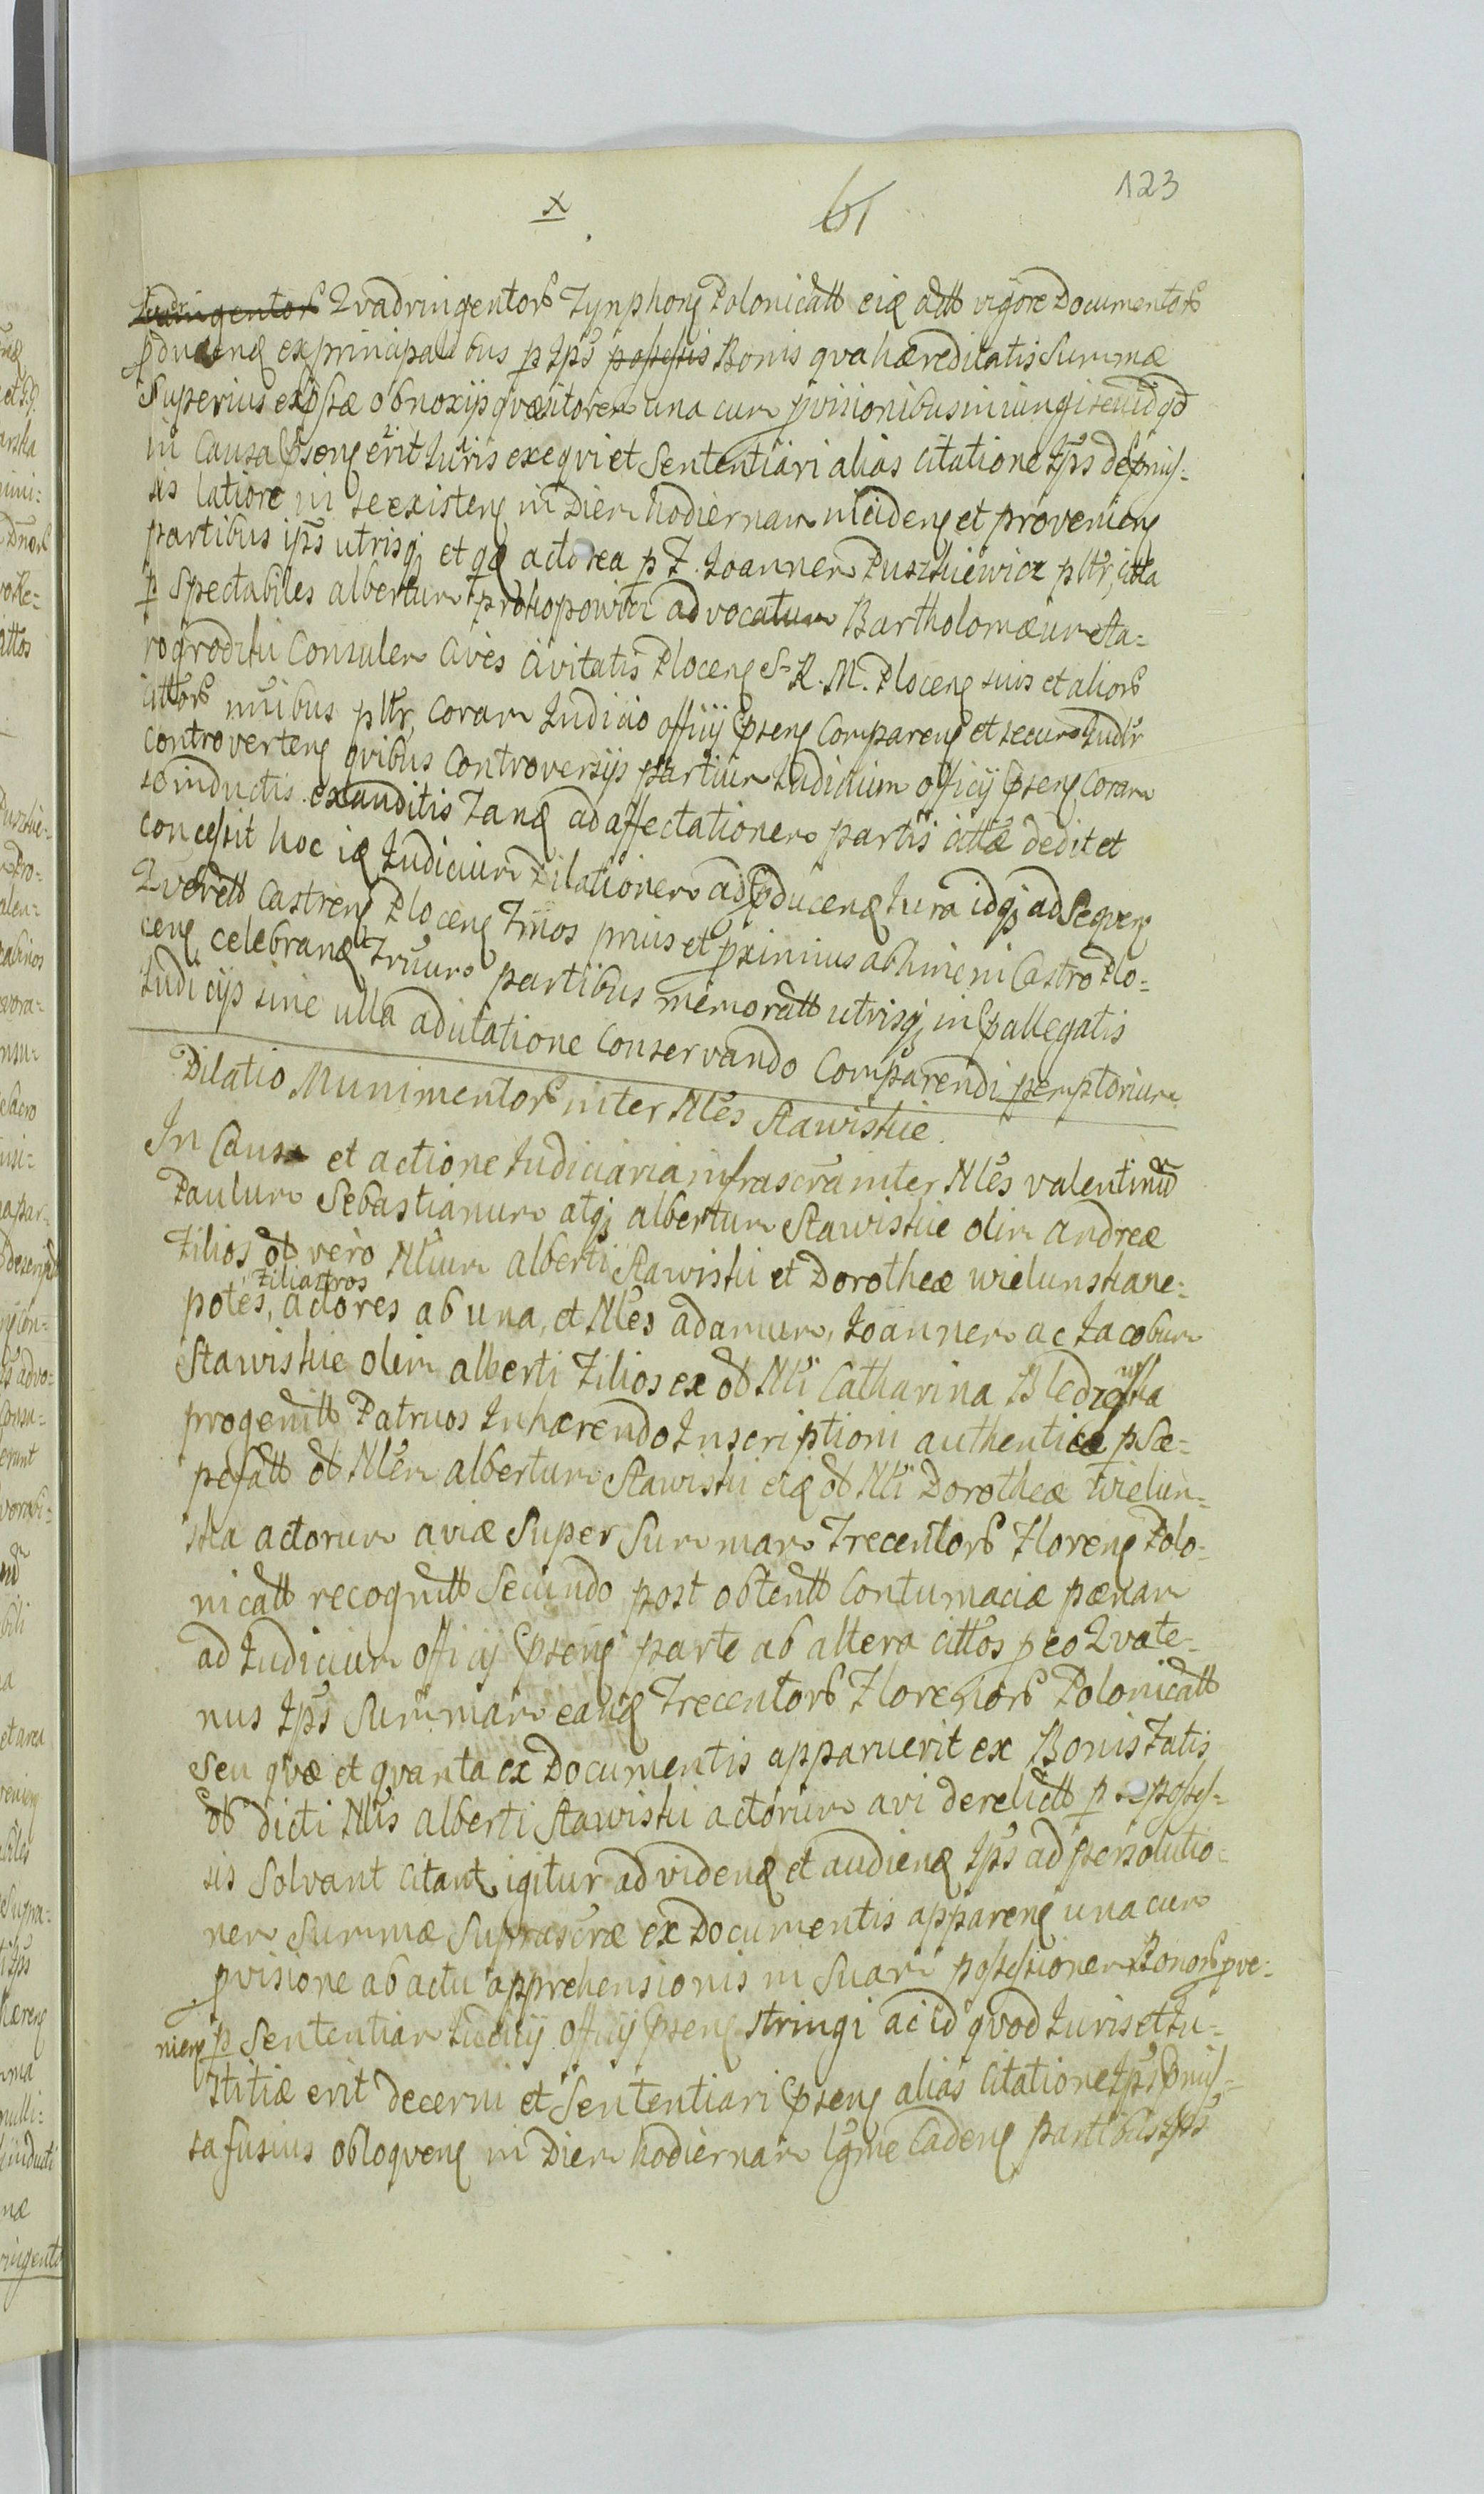 123
x 61
Quadringentorb Quadringentorb Tynphonę Polonicatt eię actt vigore Documentorb
producenę ex principalibus p Ips possessis Bonis qva hæreditatis Summæ
Superius expssæ obnoxijs qvæsitorem una cum provisionibus iniungi seu id qd
in Causa Psenę erit Iuris exeqvi et Sententiari alias Citatione Ips depmis-
sis latiore in se existenę in Diem hodiernam incidenę et provenienę
partibus ips utrisqz et qę actorea p F. Joannem Puszkiewicz pltr, citta
p Spectabiles albertum Prokopowicz advocatum Bartholomæum Sta-
rogrodzki Consulem Cives Civitatis Plocenę S. R. M. Plocenę suis et aliorb
cittorb nuibus pltr, Coram Iudicio officij Psenę Comparenę et secum Iudlr
Controvertenę qvibus Controversijs partium Iudicium officij Psenę Coram
se inductis exauditis Tanę ad affectationem partis cittæ dedit et
concessit hoc ię Iudicium Dilationem ad Pducenę Iura idqz ad Seqvenę
Qverelt Castrenę Plocenę Tmos prius et pximius ab hinc in Castro Plo-
cenę celebranę Truum partibus memoratt utrisqz in Pallegatis
Iudicijs sine ulla adcitatione Conservando Comparendi pemptorium
Dilatio Munimentorb inter Nlės Stawiskie.
In Causa et actione Iudiciaria infrascra inter Nlės valentinū
Paulum Sebastianum atqz albertum Stawiskie olim andreæ
Filios ot vero Nlium alberti Stawiski et Dorotheæ wielunska ne-
Filiastros
potes, actores ab una, et Nlės adamum, Joannem ac Jacobum
Stawiskie olim alberti Filios ex ot Nli Catharina Bledzewska
progenitt Patruos Inhærendo Inscriptioni authenticæ psæ-
pefatt ot Nlem albertum Stawiski eię ot Nli Dorotheæ Wielun-
ska actorum aviæ Super Summam Trecentorb Florenę Polo-
nicatt recognitt Secundo post obtentt Contumaciæ pænam
ad Iudicium officij Psenę parte ab altera cittos p eo Qvate-
nus Ips Summam eanę Trecentorb Florenorb Polonicatt
seu qvæ et qvanta ex Documentis apparuerit ex Bonis Tatis
ot dicti Nlis alberti Stawiski actorum avi derelictt p se posses-
sis Solvant Citant, igitur ad videnę et audienę Ips ad persolutio-
nem Summæ Suprascræ ex Documentis apparenę una cum
pvisione ab actu apprehensionis in Suam possessionem Bonorb pve-
nienę p Sententiam Iudicij officij Psenę stringi ac id qvod Iuris et Iu-
stitiæ erit decerni et Sententiari Psenę alias Citatione Ips Pmis-
sa fusius obloqvenę in Diem hodiernam lgme Cadenę partibus Ips